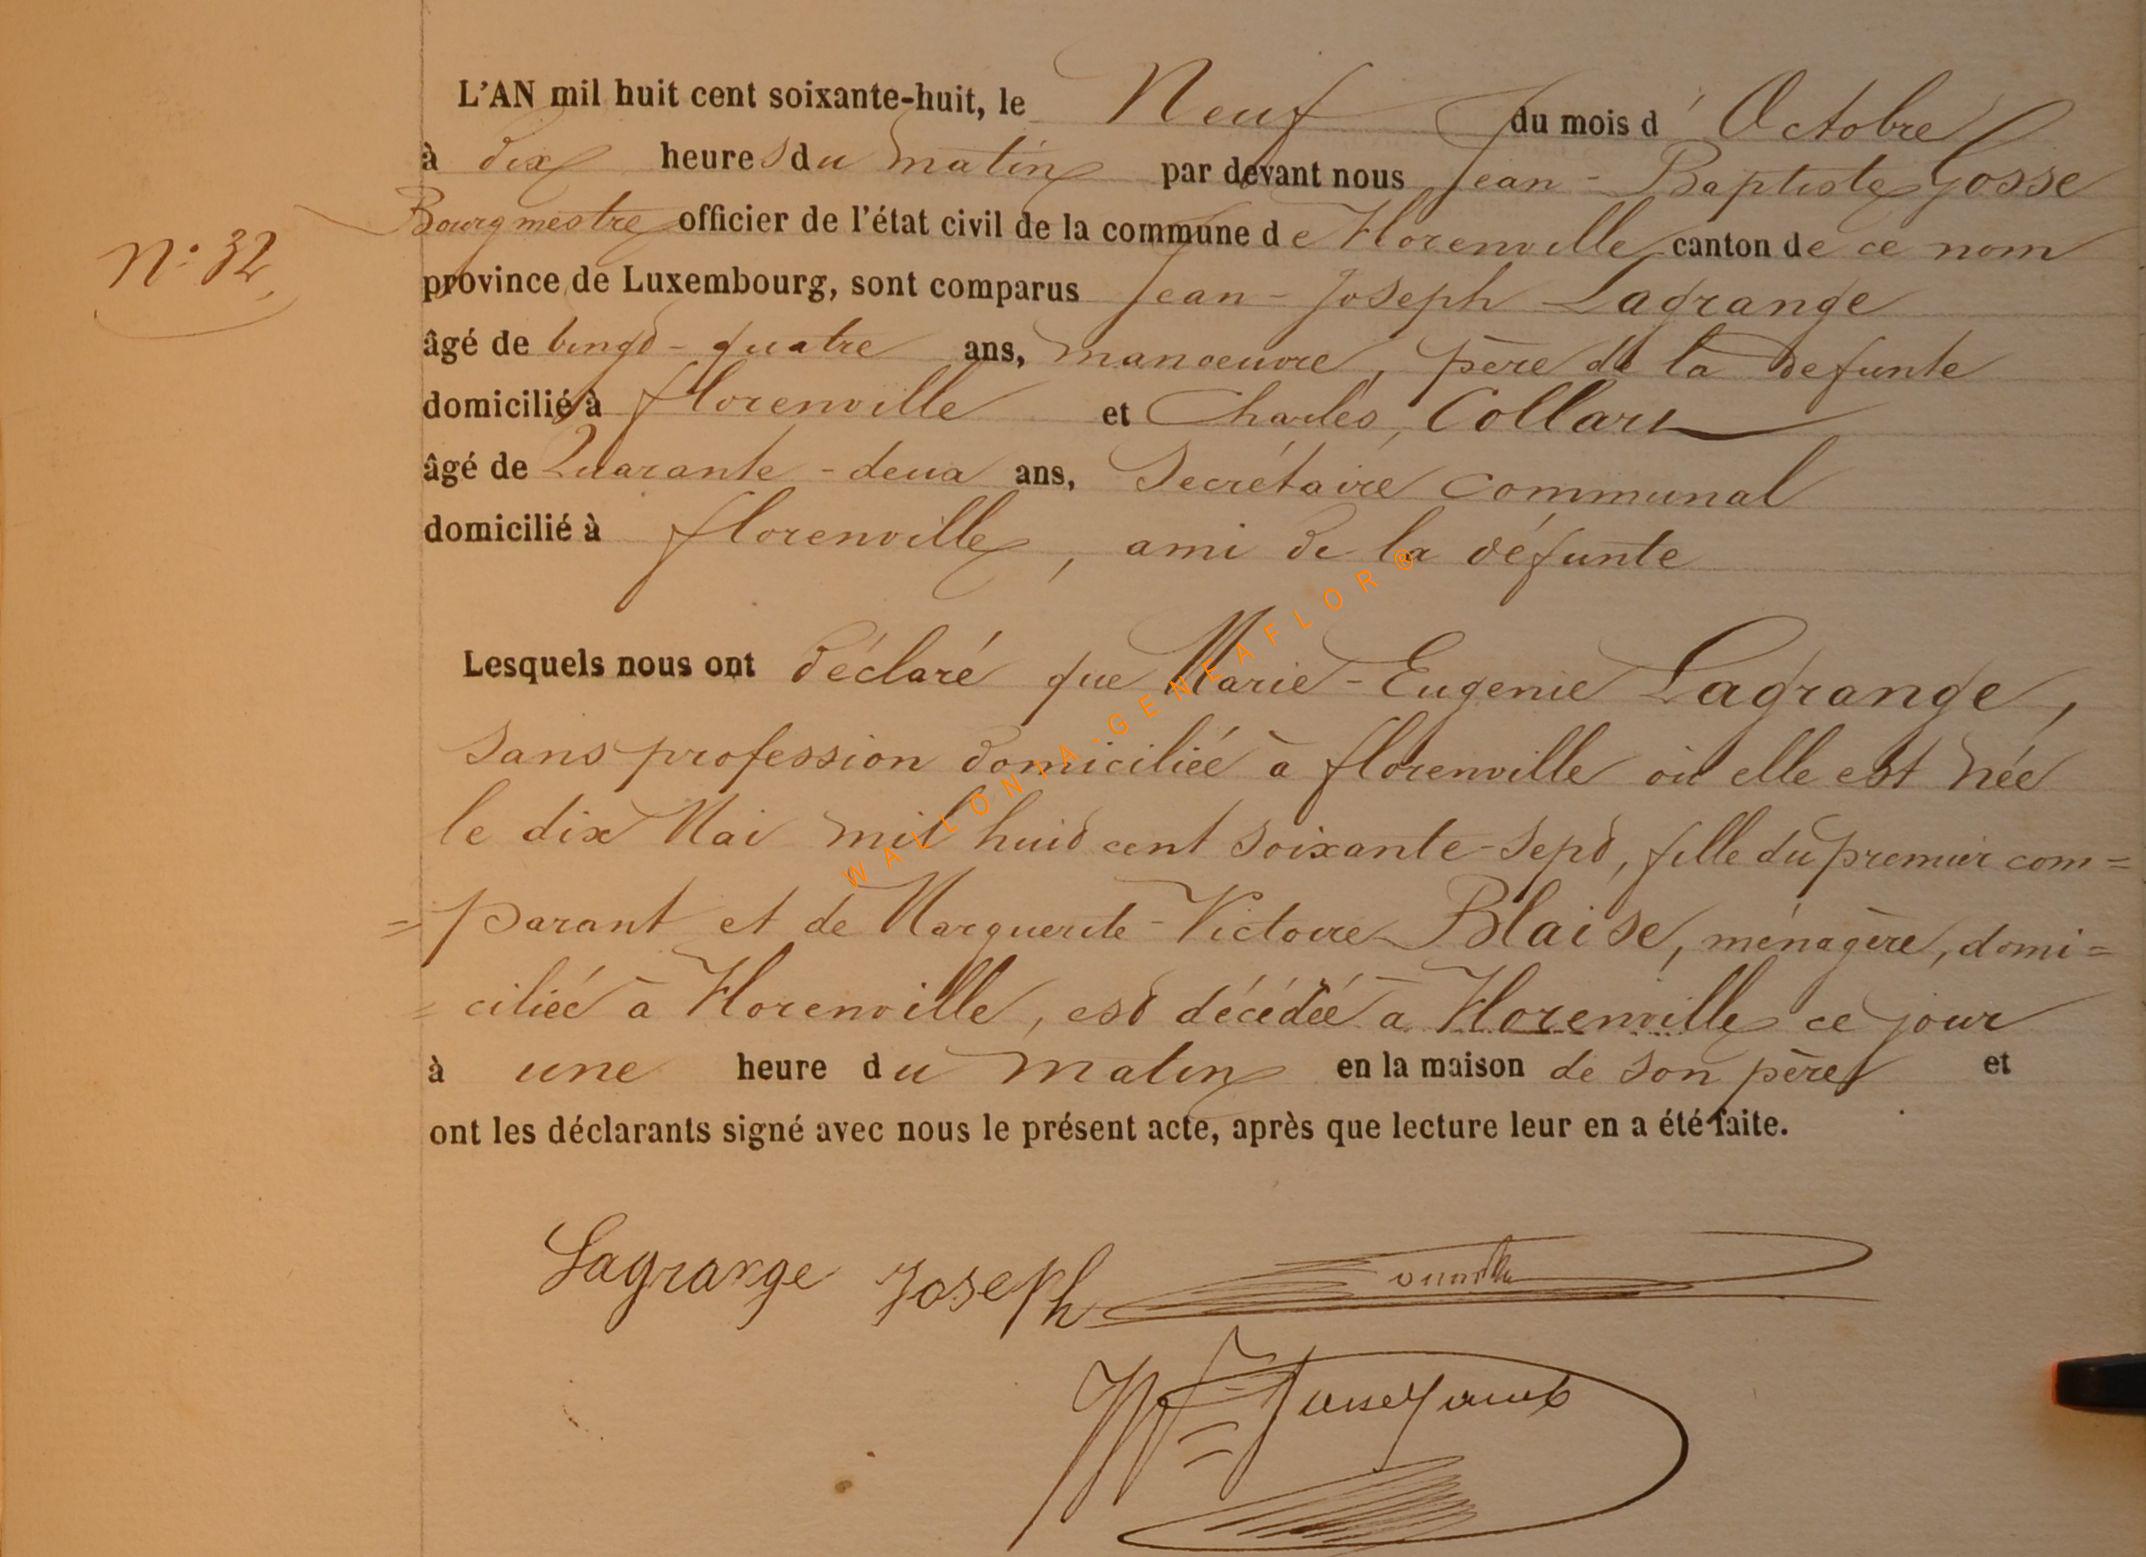 L'AN mil huit cent soixante-huit, le Neuf du mois d'Octobre
à dix heures du matin par devant nous Jean-Baptiste Gosse
Bourgmestre officier de l'état civil de la commune de Florenville canton de ce nom
N° 32
province de Luxembourg, sont comparus Jean-Joseph Lagrange
âgé de vingt-quatre ans, manoeuvre, père de la defunte
domicilié à florenville et Charles, Collart
âgé de Quarante-deux ans, Secrétaire communal
domicilié à florenville, ami de la défunte
Lesquels nous ont déclaré que Marie-Eugenie Lagrange,
sans profession domiciliée à florenville où elle est née
le dix Mai mil huit cent soixante-sept, fille du premier com=
=parant et de Marguerite-Victoire Blaise, ménagère, domi=
=ciliée à Florenville, est décédée à Florenville ce jour
à une heure du matin en la maison de son père et
ont les déclarants signé avec nous le présent acte, après que lecture leur en a été faite.
Lagrange Joseph
WALLONIA-GENEAFLOR®